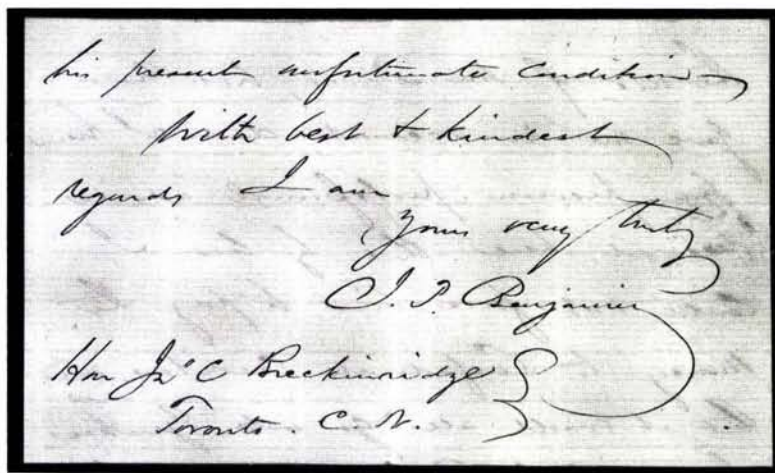 his present unfortunate condition
With best & kindest
regards I am
yours very truly
J. P. Benjamin
Hon Jno C Breckinridge
Toronto. C. W.